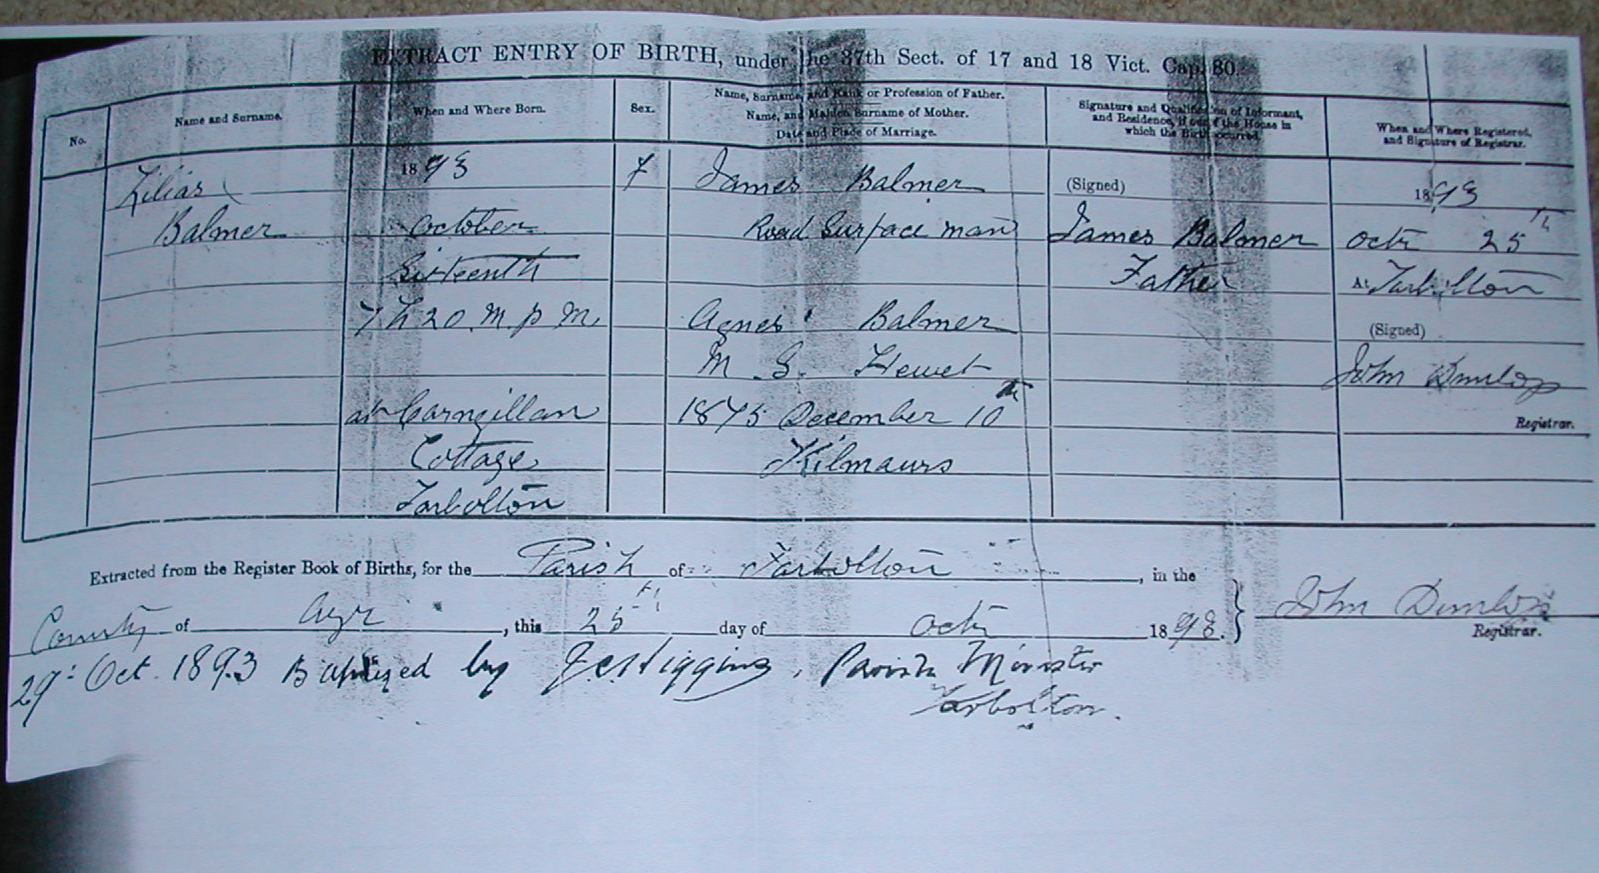 EXTRACT ENTRY OF BIRTH, under the 37th Sect. of 17 and 18 Vict. Cap. 80.
No.
Name and Surname.
When and Where Born.
Sex.
Name, Surname, and Rank or Profession of Father.
Name, and Maiden Surname of Mother.
Date and Place of Marriage.
Signature and Qualification of Informant,
and Residence, if out of the House in
which the Birth occurred.
When and Where Registered,
and Signature of Registrar.
Lilias
Balmer
1893
October
Sixteenth
7 h 20 m p m.
at Carngillan
Cottage
Tarbolton
f
James Balmer
Road Surface man
Agnes Balmer
M. S. Hewet
1875 December 10th
Kilmaurs
(Signed)
James Balmer
Father
1893
Octr 25th
At Tarbolton
(Signed)
John Dunlop
Registrar.
Extracted from the Register Book of Births, for the Parish of Tarbolton, in the
County of Ayr, this 25th day of Octr 1893.
John Dunlop
Registrar.
29th Oct. 1893 Baptized by J C Higgins, Parish Minister
Tarbolton.